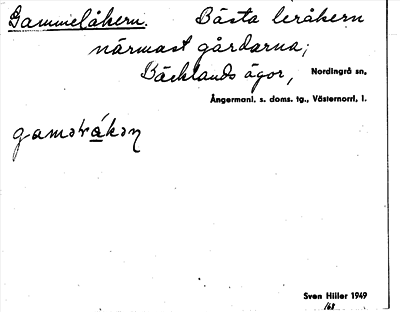 Gammelåkern. Bästa leråkern
närmast gårdarna;
Bäcklands ägor, Nordingrå sn,
Ångermanl. s. doms. tg., Västernorrl. l.
gamǝråkǝn
Sven Hiller 1949
168